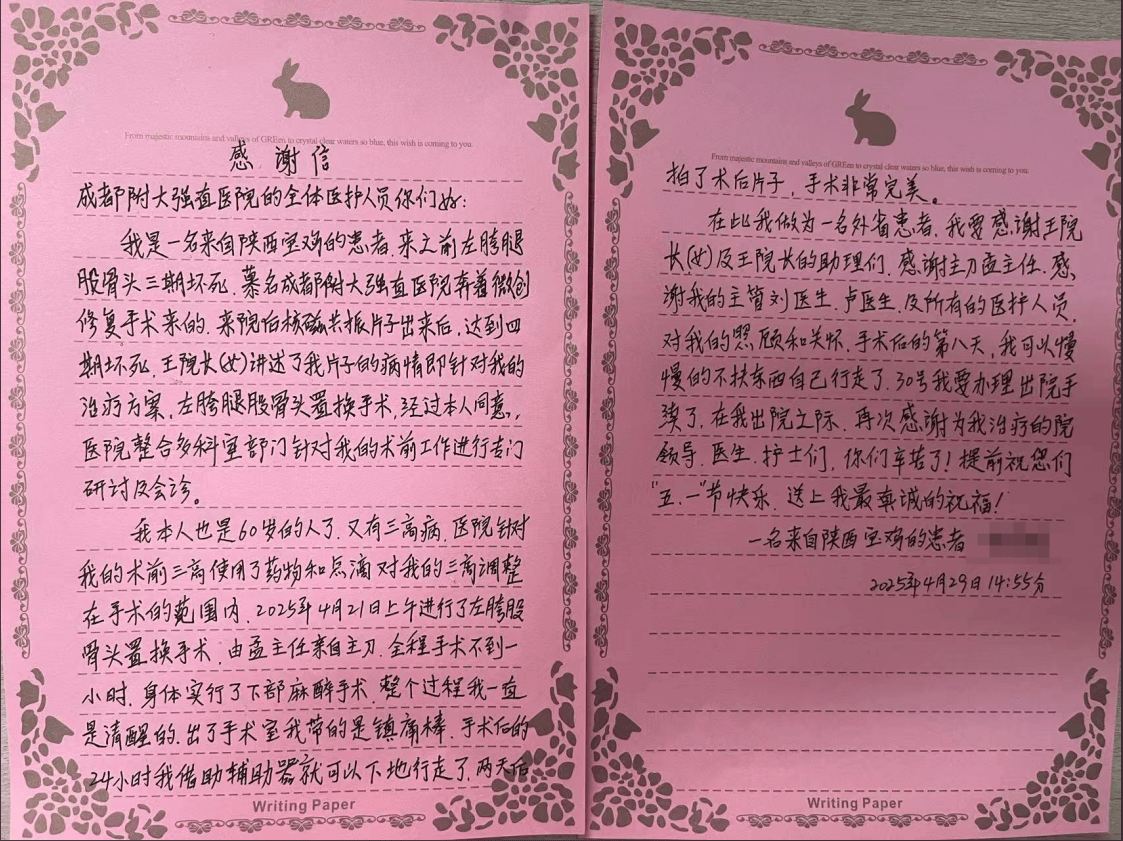 From majestic mountains and valleys of GREen to crystal clear waters so blue, this wish is coming to you.
感谢信
成都附大强直医院的全体医护人员你们好:
我是一名来自陕西宝鸡的患者.来之前左胯腿
股骨头三期坏死.慕名成都附大强直医院奔着微创
修复手术来的.来院后核磁共振片子出来后,达到四
期坏死.王院长(女)讲述了我片子的病情即针对我的
治疗方案,左胯腿股骨头置换手术,经过本人同意,
医院整合多科室部门针对我的术前工作进行专门
研讨及会诊。
我本人也是60岁的人了.又有三高病.医院针对
我的术前三高使用了药物和点滴对我的三高调整
在手术的范围内.2025年4月21日上午进行了左胯股
骨头置换手术.由孟主任亲自主刀.全程手术不到一
小时.身体实行了下部麻醉手术.整个过程我一直
是清醒的.出了手术室我带的是镇痛棒.手术后的
24小时我借助辅助器就可以下地行走了.两天后
Writing Paper
From majestic mountains and valleys of GREen to crystal clear waters so blue, this wish is coming to you.
拍了术后片子,手术非常完美。
在此我做为一名外省患者.我要感谢王院
长(女)及王院长的助理们.感谢主刀孟主任.感
谢我的主管刘医生.卢医生.及所有的医护人员.
对我的照顾和关怀.手术后的第八天,我可以慢
慢的不扶东西自己行走了.30号我要办理出院手
续了.在我出院之际.再次感谢为我治疗的院
领导.医生.护士们.你们辛苦了!提前祝您们
"五.一"节快乐.送上我最真诚的祝福!
一名来自陕西宝鸡的患者
2025年4月29日14:55分
Writing Paper